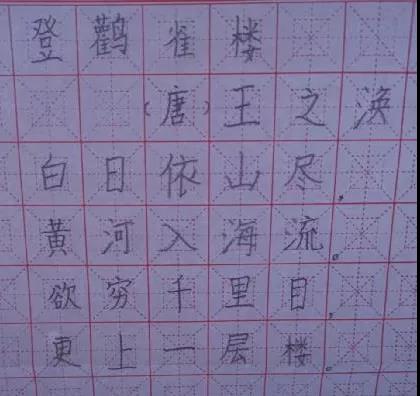 登鹳雀楼
（唐）王之涣
白日依山尽，
黄河入海流。
欲穷千里目，
更上一层楼。